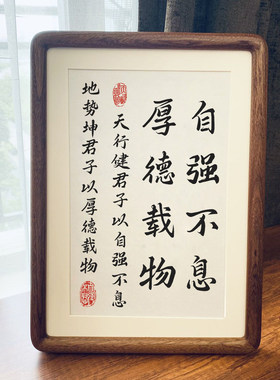 自强不息
厚德载物
天行健君子以自强不息
地势坤君子以厚德载物